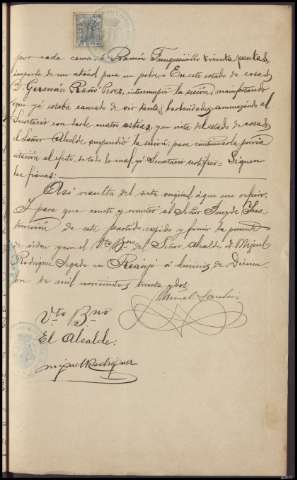 por cada cama de Ramón treinta pesetas
importe de un ataúd para un pobre. En este estado de cosas
D. Germán Raño Pose, interrumpe la sesión manifestando
que ya estaba cansado de oir tantas barbaridades, amenazando al
Secretario con darle cuatro ostias, y en vista del estado de cosas
el Señor Alcalde suspendió la sesión para continuarla previa
citación al efecto, de todo lo cual yo Secretario certifico = Siguen
las firmas.
Así resulta del acta original á que me refiero.
Y para que conste y remitir al Señor Juez de Ins
trucción de este partido expido y firmo la presente
de orden y con el Vto. Bno. del Señor Alcalde D. Miguel
Rodríguez en Rianjo á de Diciem
bre de mil novecientos treinta y dos.
Manuel
Vto Bno
El Alcalde.
Miguel Rodriguez